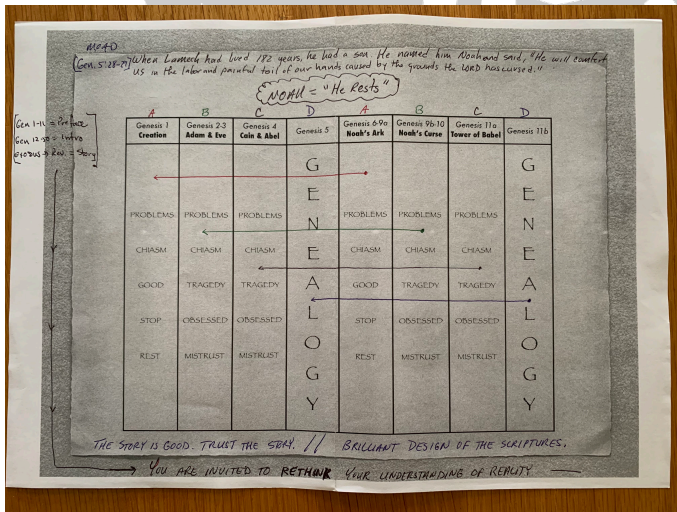 MOAD
[Gen. 5:28-29] When Lamech had lived 182 years, he had a son. He named him Noah and said, "He will comfort
us in the labor and painful toil of our hands caused by the grounds the LORD has cursed."
NOAH = "He Rests"
[Gen 1-11 = Preface
Gen 12-50 = Intro
Exodus → Rev. = Story]
A B C D A B C D
Genesis 1 Genesis 2-3 Genesis 4 Genesis 5 Genesis 6-9a Genesis 9b-10 Genesis 11a Genesis 11b
Creation Adam & Eve Cain & Abel Noah's Ark Noah's Curse Tower of Babel
GENEALOGY GENEALOGY
PROBLEMS PROBLEMS PROBLEMS PROBLEMS PROBLEMS PROBLEMS
CHIASM CHIASM CHIASM CHIASM CHIASM CHIASM
GOOD TRAGEDY TRAGEDY GOOD TRAGEDY TRAGEDY
STOP OBSESSED OBSESSED STOP OBSESSED OBSESSED
REST MISTRUST MISTRUST REST MISTRUST MISTRUST
THE STORY IS GOOD. TRUST THE STORY. // BRILLIANT DESIGN OF THE SCRIPTURES.
YOU ARE INVITED TO RETHINK YOUR UNDERSTANDING OF REALITY